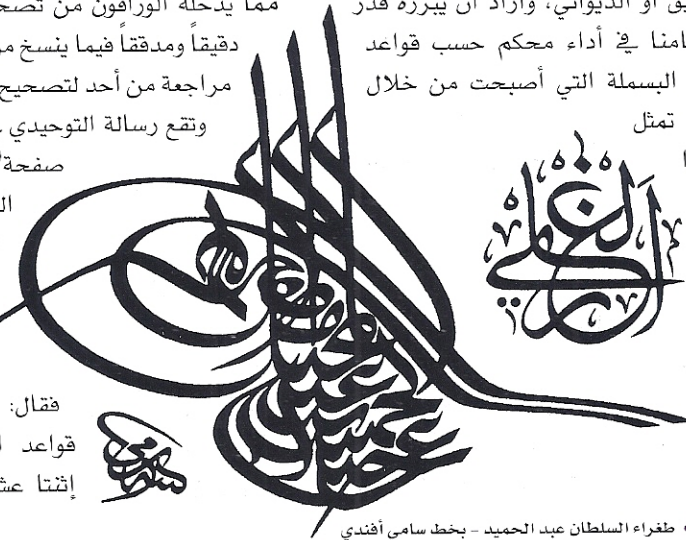 يق أو الديواني، وأراد أن يبرزه قدر
امنا في أداء محكم حسب قواعد
البسملة التي أصبحت من خلال
تمثل
مما يدخله الوراقون من تصح
دقيقاً ومدققاً فيما ينسخ م
مراجعة من أحد لتصحيح
وتقع رسالة التوحيدي
صفحة
ال
فقال:
قواعد ا
إثنتا عش
طغراء السلطان عبد الحميد – بخط سامي أفندي